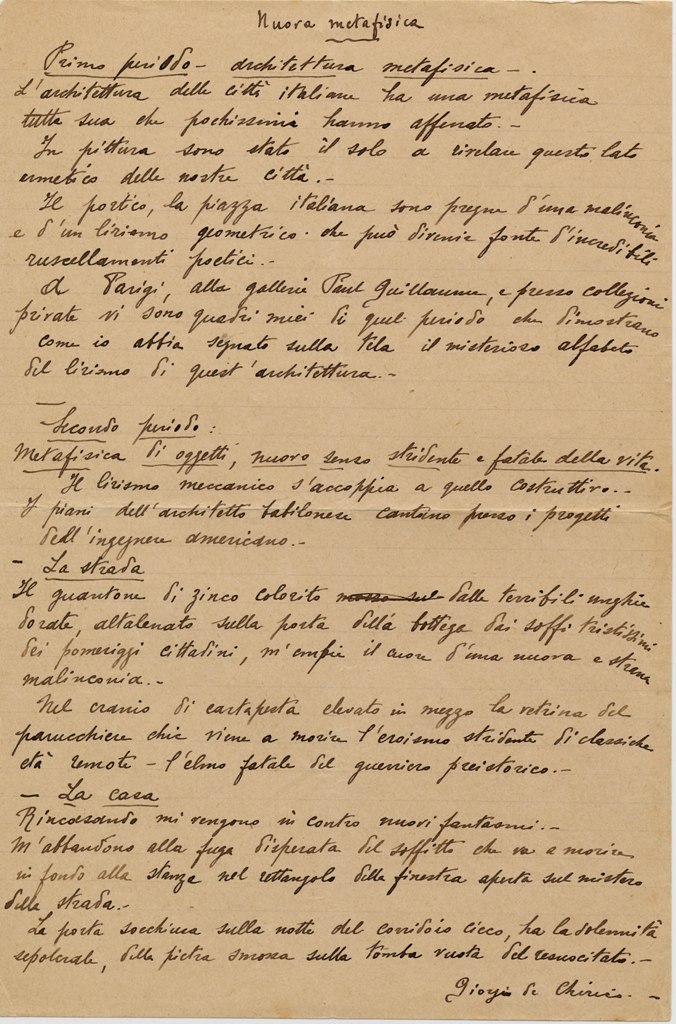 Nuova metafisica
Primo periodo - architettura metafisica - .
L'architettura delle città italiane ha una metafisica
tutta sua che pochissimi hanno afferrato. -
In pittura sono stato il solo a rivelare questo lato
ermetico delle nostre città. -
Il portico, la piazza italiana sono pregne d'una malinconia
e d'un lirismo geometrico che può divenir fonte d'incredibili
ruscellamenti poetici. -
A Parigi, alla galleria Paul Guillaume, e presso collezioni
private vi sono quadri miei di quel periodo che dimostrano
come io abbia segnato sulla tela il misterioso alfabeto
del lirismo di quest'architettura. -
- Secondo periodo :
Metafisica di oggetti, nuovo senso stridente e fatale della vita.
Il lirismo meccanico s'accoppia a quello costruttivo. -
I piani dell'architetto babilonese cantano presso i progetti
dell'ingegnere americano. -
- La strada
Il guantone di zinco colorito mosso sul dalle terribili unghie
dorate, altalenato sulla porta della bottega dai soffi tristissimi
dei pomeriggi cittadini, m'empie il cuore d'una nuova e strana
malinconia. -
Nel cranio di cartapesta elevato in mezzo la vetrina del
parucchiere chic viene a morire l'eroismo stridente di classiche
età remote - l'elmo fatale del guerriero preistorico. -
- La casa
Rincasando mi vengono in contro nuovi fantasmi. -
M'abbandono alla fuga disperata del soffitto che va a morire
in fondo alla stanza nel rettangolo della finestra aperta sul mistero
della strada. -
La porta socchiusa sulla notte del corridoio cieco, ha la solennità
sepolcrale, della pietra smossa sulla tomba vuota del resuscitato. -
Giorgio de Chirico. -